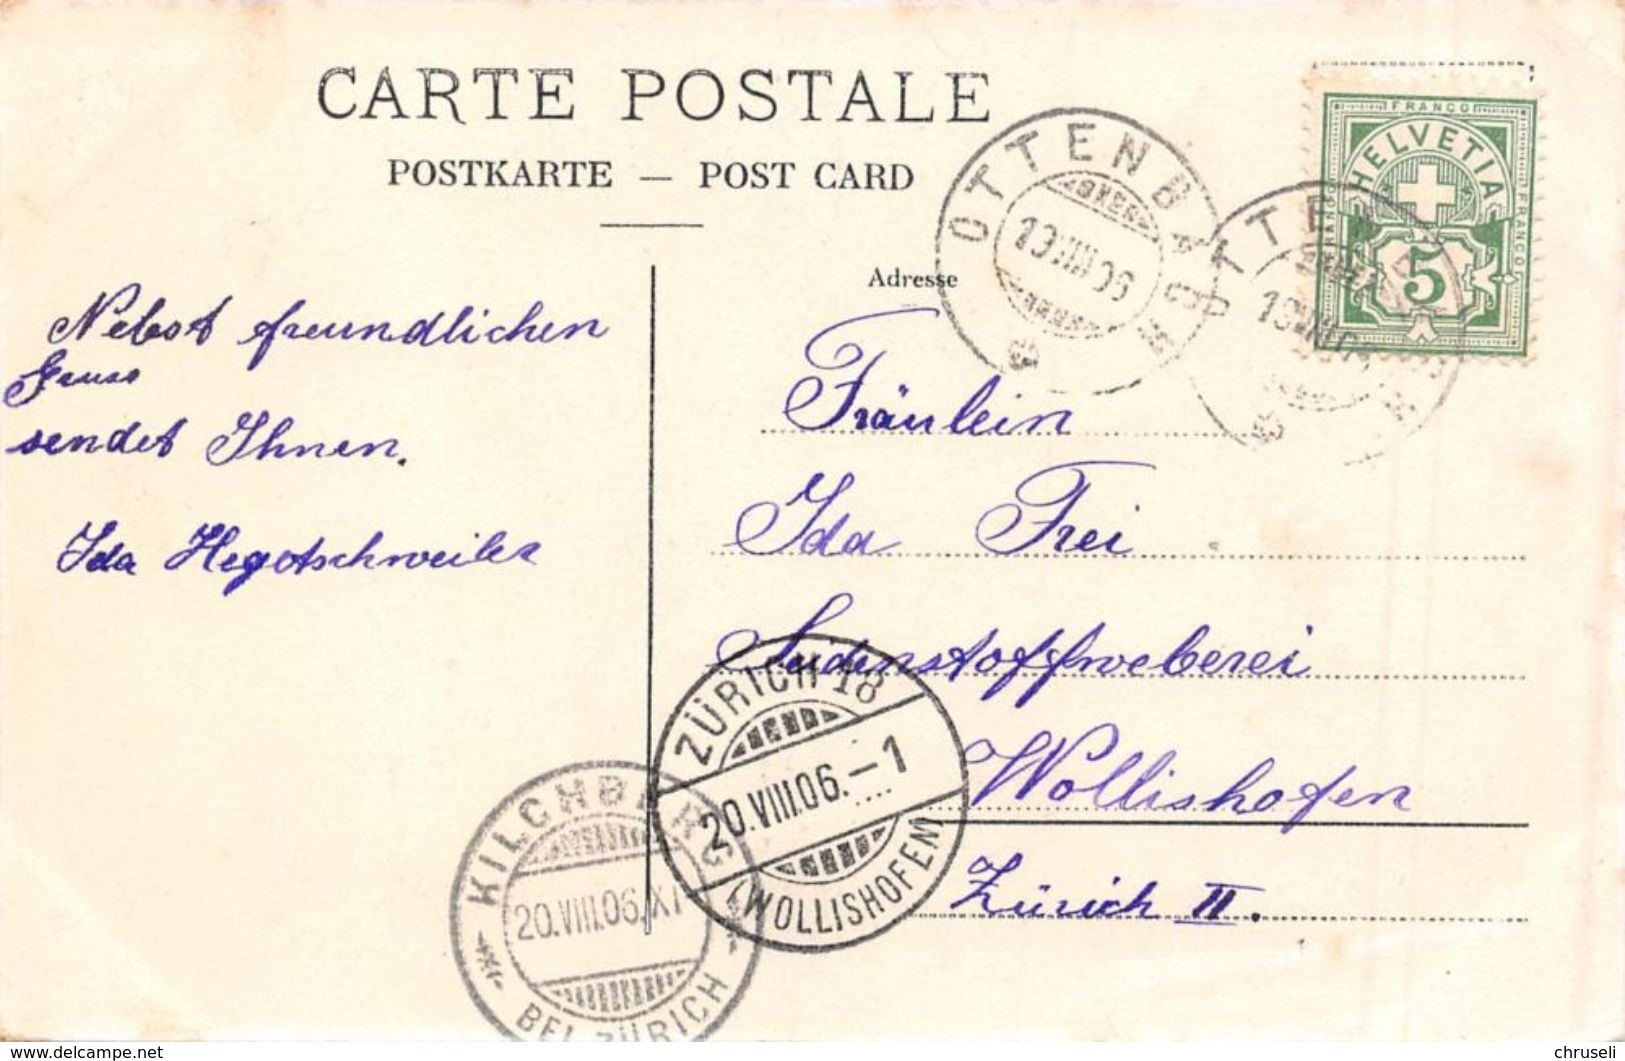 CARTE POSTALE
POSTKARTE — POST CARD
FRANCO
HELVETIA
FRANCO
FRANCO
5
OTTENBACH
19.VIII.06
OTTENBACH
Adresse
Nebst freundlichen
Gruss
sendet Ihnen.
Ida Hegetschweiler
Fräulein
Ida Frei
Seidenstoffweberei
Wollishofen
Zürich II.
ZÜRICH 18
20.VIII.06.–1
(WOLLISHOFEN)
KILCHBERG
20.VIII.06.XI
BEI ZÜRICH
www.delcampe.net
chruseli